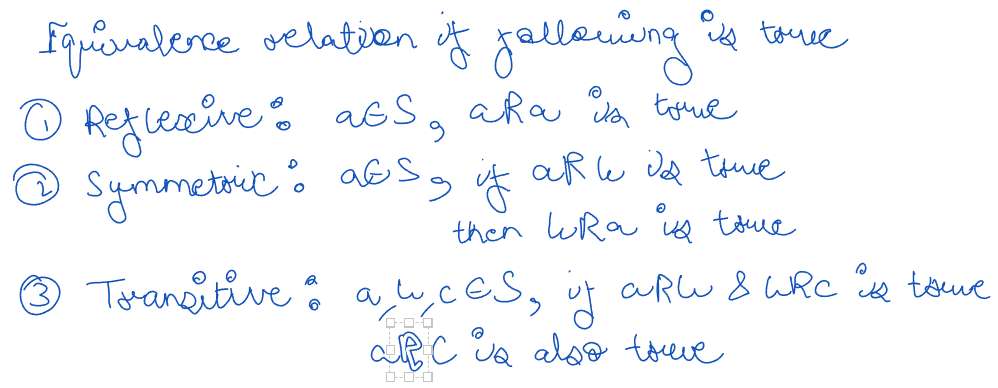 Equivalence relation if following is true
① Reflexive: a∈S, aRa is true
② Symmetric: a∈S, if aRb is true
then bRa is true
③ Transitive: a,b,c∈S, if aRb & bRc is true
aRc is also true